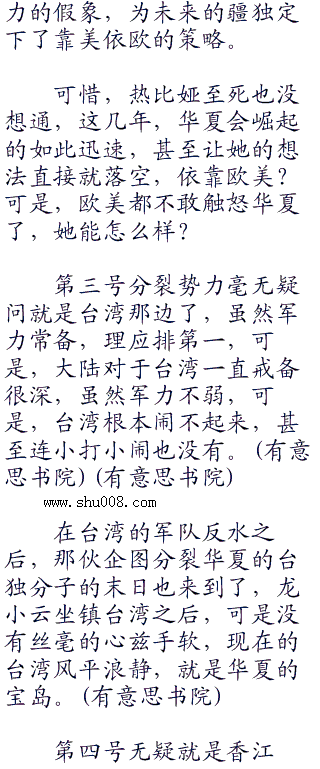 力的假象，为未来的疆独定
下了靠美依欧的策略。
可惜，热比娅至死也没
想通，这几年，华夏会崛起
的如此迅速，甚至让她的想
法直接就落空，依靠欧美？
可是，欧美都不敢触怒华夏
了，她能怎么样？
第三号分裂势力毫无疑
问就是台湾那边了，虽然军
力常备，理应排第一，可
是，大陆对于台湾一直戒备
很深，虽然军力不弱，可
是，台湾根本闹不起来，甚
至连小打小闹也没有。(有意
思书院)(有意思书院)
www.shu008.com
在台湾的军队反水之
后，那伙企图分裂华夏的台
独分子的末日也来到了，龙
小云坐镇台湾之后，可是没
有丝毫的心兹手软，现在的
台湾风平浪静，就是华夏的
宝岛。(有意思书院)
第四号无疑就是香江